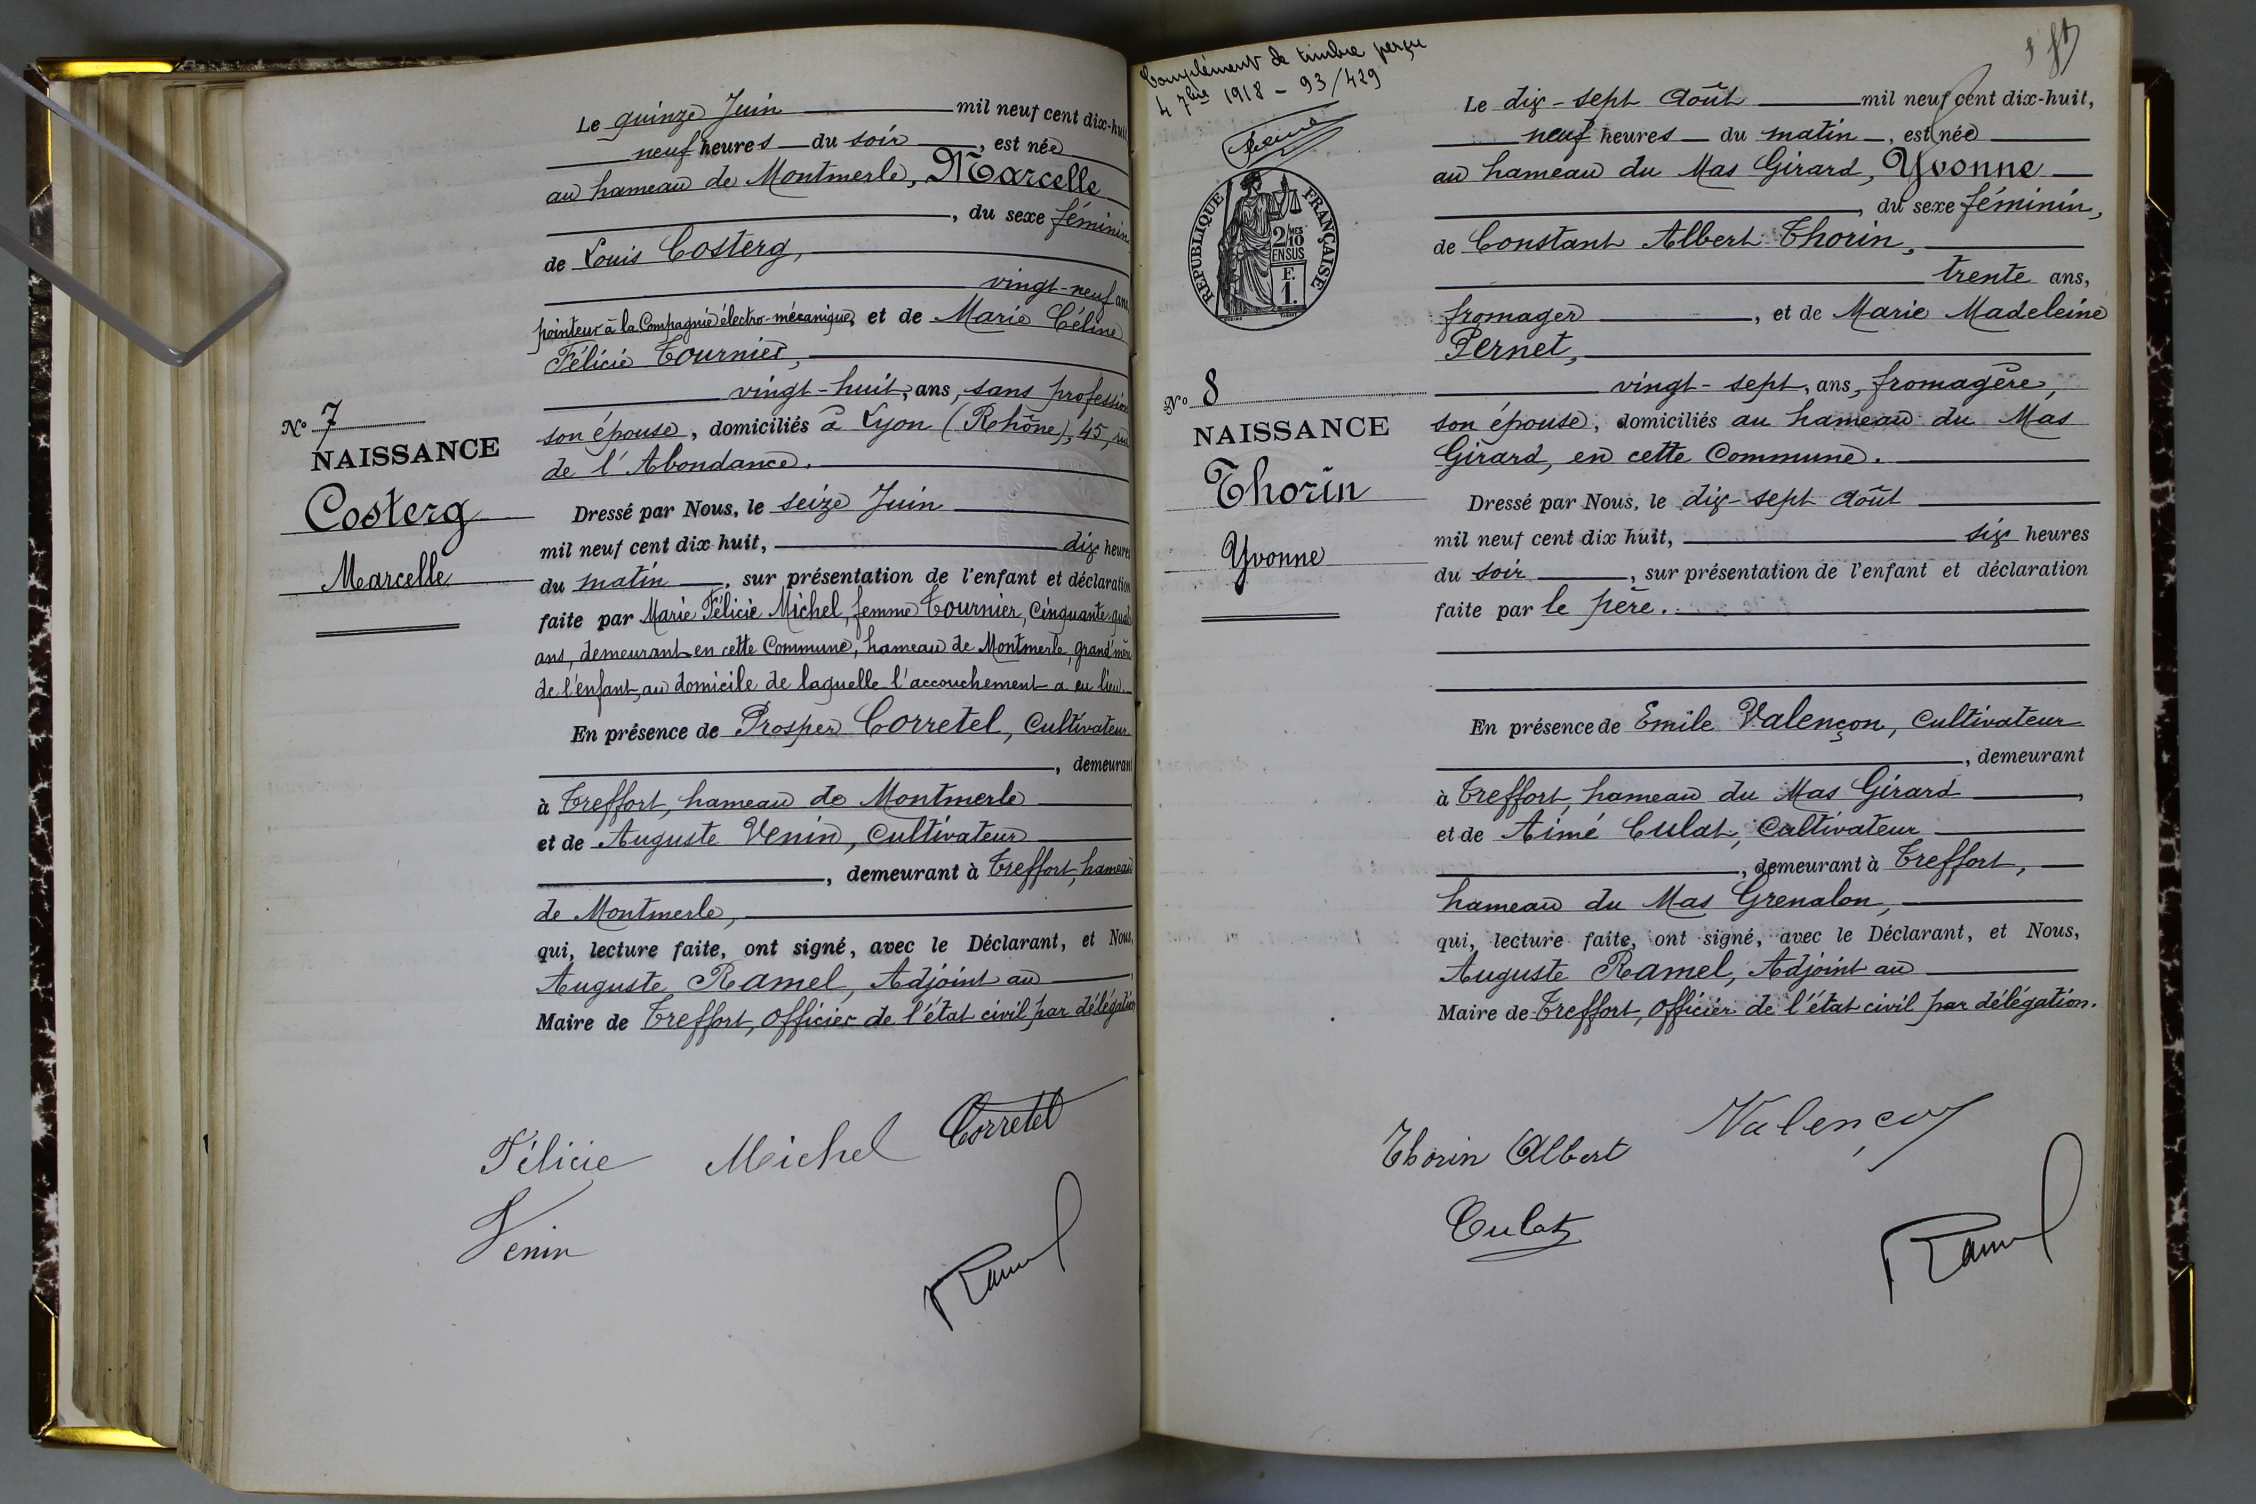 Le quinze Juin mil neuf cent dix-huit
neuf heures du soir, est née
au hameau de Montmerle, Marcelle
, du sexe féminin
de Louis Costerg,
vingt-neuf ans
pointeur à la Compagnie électro-mécanique, et de Marie Céline
Félicie Tournier,
vingt-huit, ans, sans profession
son épouse, domiciliés à Lyon (Rhône), 45, rue
de l'Abondance.
N° 7
NAISSANCE
Costerg
Marcelle
Dressé par Nous, le seize Juin
mil neuf cent dix huit, dix heures
du matin, sur présentation de l'enfant et déclaration
faite par Marie Félicie Michel, femme Tournier, Cinquante quatre
ans, demeurant en cette Commune, hameau de Montmerle, grand'mère
de l'enfant, au domicile de laquelle l'accouchement a eu lieu.
En présence de Prosper Corretel, Cultivateur
, demeurant
à Treffort, hameau de Montmerle
et de Auguste Venin, Cultivateur
, demeurant à Treffort, hameau
de Montmerle,
qui, lecture faite, ont signé, avec le Déclarant, et Nous,
Auguste Ramel, Adjoint au
Maire de Treffort, Officier de l'état civil par délégation
Félicie Michel Corretel
Venin
Ramel
Complément de timbre perçu
4 7bre 1918 - 93/429
RÉPUBLIQUE FRANÇAISE
2/MES
10
EN SUS
F.
1.
Le dix-sept Août mil neuf cent dix-huit,
neuf heures du matin, est née
au hameau du Mas Girard, Yvonne
, du sexe féminin,
de Constant Albert Thorin,
trente ans,
fromager, et de Marie Madeleine
Pernet,
vingt-sept, ans, fromagère,
son épouse, domiciliés au hameau du Mas
Girard, en cette Commune.
N° 8
NAISSANCE
Thorin
Yvonne
Dressé par Nous, le dix-sept Août
mil neuf cent dix huit, six heures
du soir, sur présentation de l'enfant et déclaration
faite par le père.
En présence de Emile Valençon, Cultivateur
, demeurant
à Treffort, hameau du Mas Girard,
et de Aimé Culat, Cultivateur
, demeurant à Treffort,
hameau du Mas Grenalon,
qui, lecture faite, ont signé, avec le Déclarant, et Nous,
Auguste Ramel, Adjoint au
Maire de Treffort, Officier de l'état civil par délégation.
Thorin Albert Valençon
Culat
Ramel